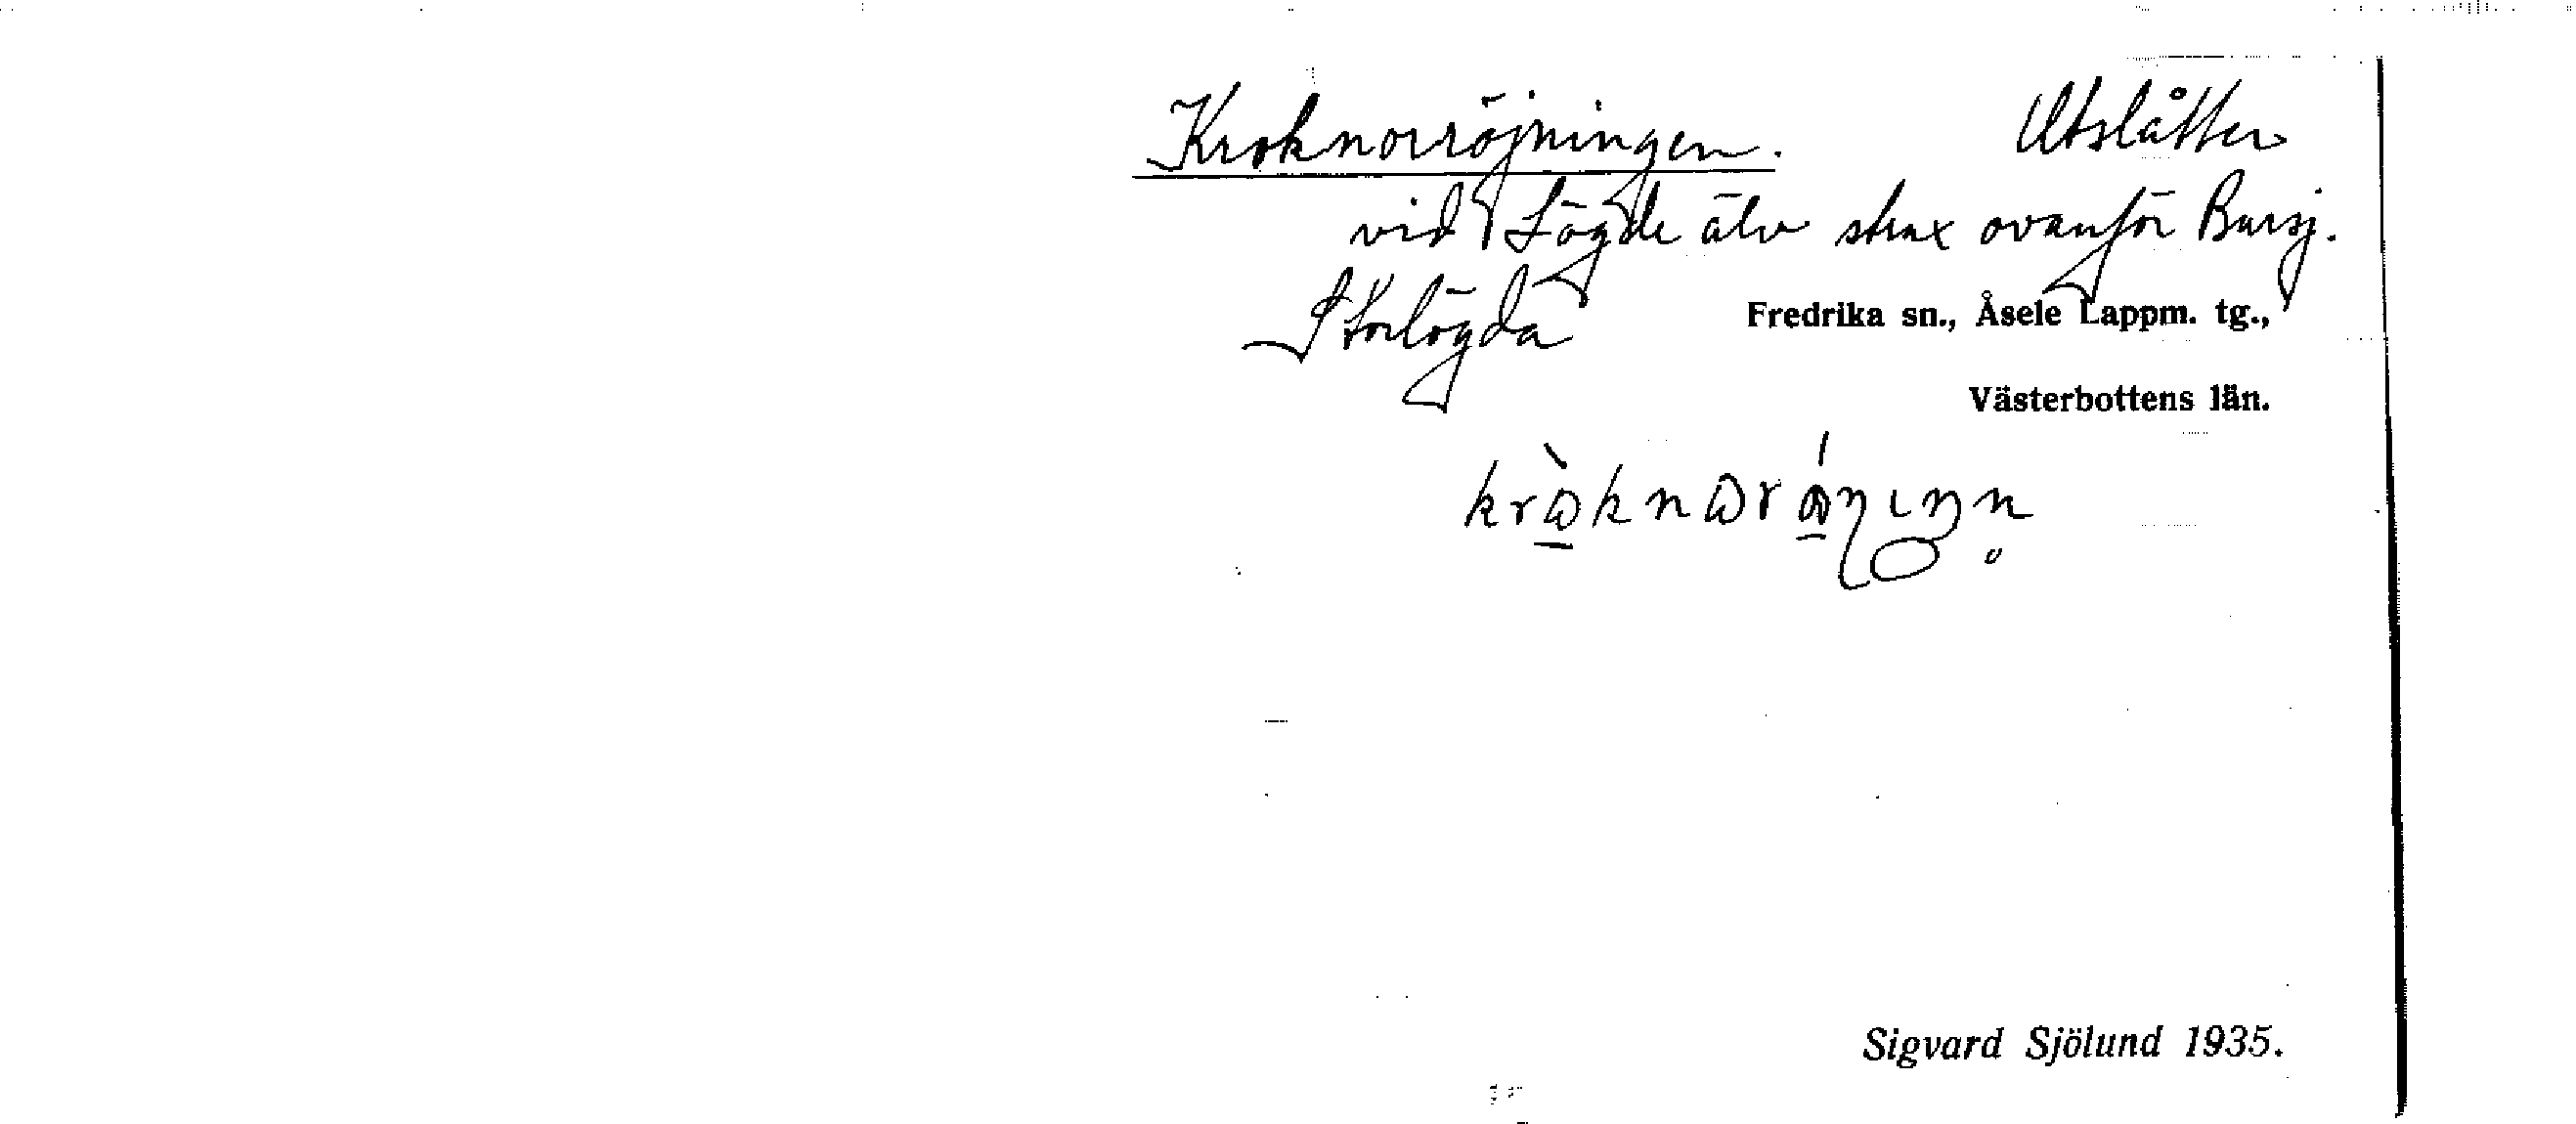 Kroknorröjningen. Utslåtter
vid Lögde älv strax ovanför Bursj.
Storlögda Fredrika sn., Åsele Lappm. tg.,
Västerbottens län.
Sigvard Sjölund 1935.